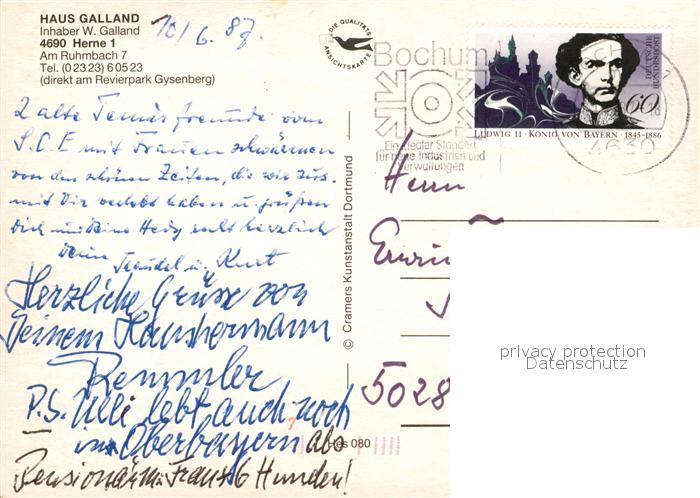 HAUS GALLAND
Inhaber W. Galland
4690 Herne 1
Am Ruhmbach 7
Tel. (0 23 23) 6 05 23
(direkt am Revierpark Gysenberg)
10/6. 87.
DIE QUALITÄTS
ANSICHTSKARTE
Bochum
Ein idealer Standort
für neue Industrien und
Verwaltungen
4630
DEUTSCHE
BUNDESPOST
60
LUDWIG II · KÖNIG VON BAYERN · 1845-1886
2 alte Tennisfreunde vom
S.C.E mit Frauen schwärmen
von den schönen Zeiten, die wir zus.
mit Dir verlebt haben u. grüßen
Dich und Deine Hedy recht herzlich
Deine Traudel u. Kurt
Herzliche Grüsse von
Deinem
Remmler
P.S. Uli lebt auch noch
in Oberbayern als
Pensionär m. Frau + 6 Hunden!
© Cramers Kunstanstalt Dortmund
Hes 080
Herrn
Erwin
5028
privacy protection
Datenschutz